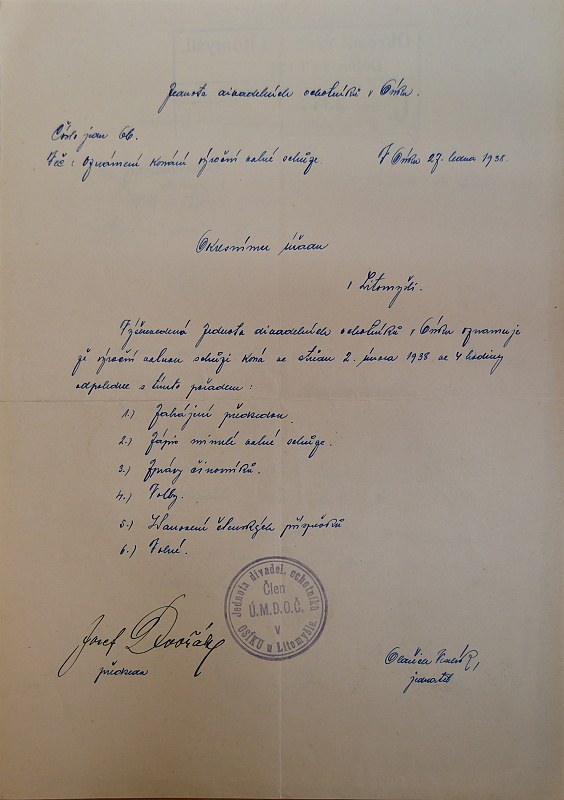 Jednota divadelních ochotníků v Osíku.
Číslo jedn 66.
Věc: Oznámení konání výroční valné schůze. V Osíku 27. ledna 1938.
Okresnímu úřadu
v Litomyšli.
Výšeuvedená Jednota divadelních ochotníků v Osíku oznamuje
že výroční valnou schůzi koná ve středu 2. února 1938 ve 4 hodiny
odpoledne s tímto pořadem:
1.) Zahájení předsedou
2.) Zápis minulé valné schůze.
3.) Zprávy činovníků.
4.) Volby.
5.) Stanovení členských příspěvků
6.) Volné.
Jednota divadel. ochotníků
Člen
Ú.M.D.O.Č.
v
OSÍKU u Litomyšle.
Josef Dvořák
předseda
jednatel